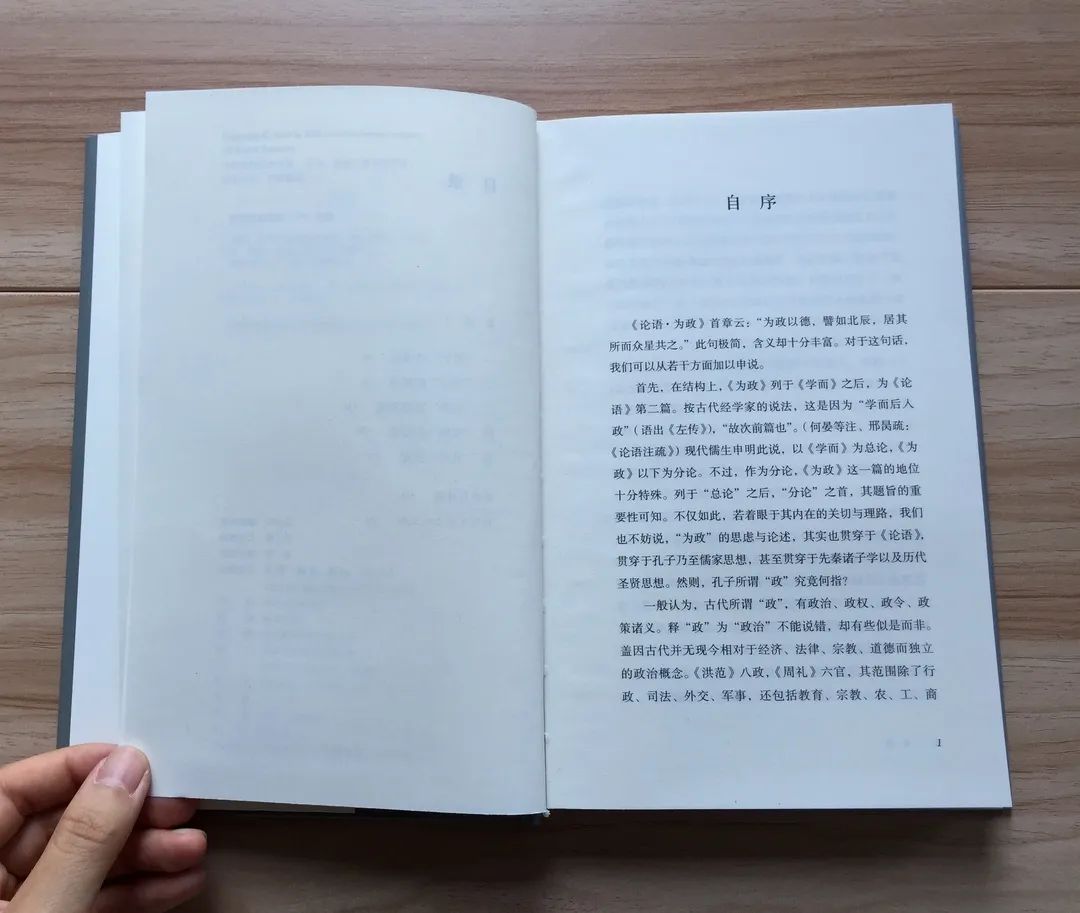 自 序
《论语·为政》首章云：“为政以德，譬如北辰，居其
所而众星共之。”此句极简，含义却十分丰富。对于这句话，
我们可以从若干方面加以申说。
首先，在结构上，《为政》列于《学而》之后，为《论
语》第二篇。按古代经学家的说法，这是因为“学而后入
政”（语出《左传》），“故次前篇也”。（何晏等注、邢昺疏：
《论语注疏》）现代儒生申明此说，以《学而》为总论，《为
政》以下为分论。不过，作为分论，《为政》这一篇的地位
十分特殊。列于“总论”之后，“分论”之首，其题旨的重
要性可知。不仅如此，若着眼于其内在的关切与理路，我们
也不妨说，“为政”的思虑与论述，其实也贯穿于《论语》，
贯穿于孔子乃至儒家思想，甚至贯穿于先秦诸子学以及历代
圣贤思想。然则，孔子所谓“政”究竟何指？
一般认为，古代所谓“政”，有政治、政权、政令、政
策诸义。释“政”为“政治”不能说错，却有些似是而非。
盖因古代并无现今相对于经济、法律、宗教、道德而独立
的政治概念。《洪范》八政，《周礼》六官，其范围除了行
政、司法、外交、军事，还包括教育、宗教、农、工、商
1